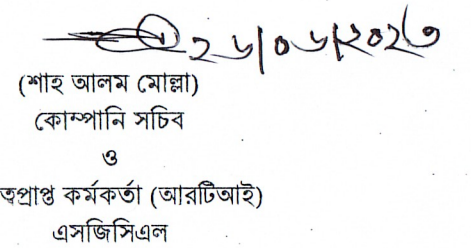 ২৬/০৬/২০২৩
(শাহ আলম মোল্লা)
কোম্পানি সচিব
ও
ত্বপ্রাপ্ত কর্মকর্তা (আরটিআই)
এসজিসিএল